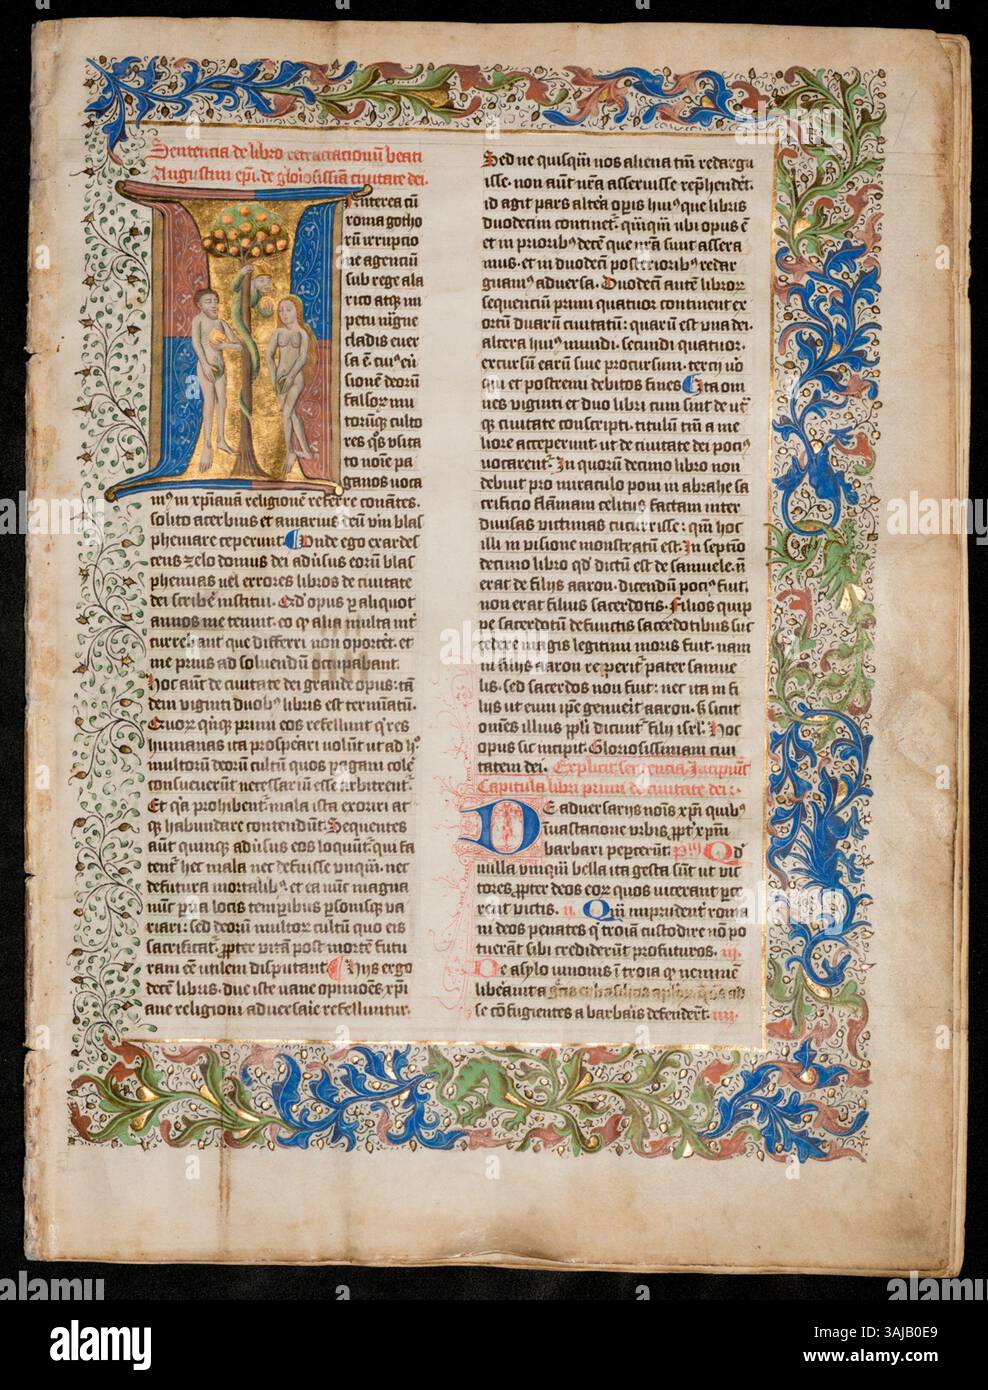 Sentencia de libro retractacionū beati
Augustini ep̄i. de gloiosissīa ciuitate dei.
Interea cū
roma gotho
rū irruptio
ne agenciū
sub rege ala
rico atq; im
petu
cladis euer
sa ē
sionē deoꝝ
falsoꝝ mu
toꝝq; culto
res
to noīe pa
ganos uoca
in xp̄ianā religionē referre conātes.
solito acerbius et amarius deū vm̄ blas
phemare ceperunt. Vnde ego exardes
cens zelo domus dei aduʼsus eorū blas
phemias uel errores libros de ciuitate
dei scribeʼ institui. Qd̓ opus p̲ aliquot
annos me tenuit. eo ꝙ alia multa
currebant que differri non oportet. et
me prius ad soluendū occupabant.
Hoc aūt de ciuitate dei grande opus: tā
dem viginti duobꝫ libris est termīatū.
Quoꝝ qnq; primi eos refellunt
humanas ita prosperari uolūt ut ad
multoꝝ deoꝝ cultū quos pagani colē
consueuerūt necessariū esse arbitrent̄.
Et qa prohibent̄ mala ista exoriri at
q; habundare contendūt. Sequentes
aūt quinq; aduʼsus eos loquūt̄ qui fa
tent̄ hec mala nec defuisse vnqm̄. nec
defutura mortalibꝫ. et ea nūc magna
nūc parua locis temp̲ibus p̲sonisq; va
riari: sed deoꝝ multoꝝ cultū quo eis
sacrificat̄. ꝓpter vitā post mortē futu
ram eē utilem disputant. Hijs ergo
decē libris. due iste uane opinioēs xp̄i
ane religioni aduersarie refelluntur.
Sed ne quisqm̄ nos aliena tm̄ redargu
isse. non aūt nr̄a asseruisse rep̲hendeʼt.
id agit pars altera op̲is huiꝰ que libris
duodecim continet̄. qm̄qm̄ ubi opus ē
et in prioribꝫ decē que nr̄a sunt assera
mus. et in duodecī posterioribꝫ redar
guamꝰ aduersa. Duodecī autē libroꝝ
sequencium primi quatuor continent ex
ortū duarū ciuitatū: quarū est vna dei.
altera huiꝰ mundi. secundi quatuor.
excursū earū siue procursum. tercij vo
qui et postremi debitos fines. Ita om
nes viginti et duo libri cum sint de ut̄
q; ciuitate conscripti. titulū tm̄ a me
liore acceperunt. ut de ciuitate dei pociꝰ
uocarent̄. In quoꝝ decimo libro non
debuit pro miraculo poni in abrahe sa
crificio flāmam celitus factam inter
diuisas victimas cucurrisse: qm̄ hoc
illi in visione monstratū est. In septīo
decimo libro qd̓ dictū est de samuele. nō
erat de filijs aaron. dicendū pociꝰ fuit.
non erat filius sacerdotis. Filios quip
pe sacerdotū defunctis sacerdotibus suc
cedere magis legitimi moris fuit. nam
in filijs aaron reperit̄ pater samue
lis. sed sacerdos non fuit: nec ita in fi
lijs ut eum ip̄e genuerit aaron. sʼ sicut
omēs illius pp̄li dicūt̄ filij isrl̄. Hoc
opus sic incipit. Gloriosissimam ciui
tatem dei. Explicit sentencia. Incipiūt
Capitula libri primi de ciuitate dei:.
De aduersarijs noīs xp̄i quibꝫ
ī uastacione vrbis. ꝓpt̄ xp̄m
barbari pepercerūt. pm̄ Qd̓
nulla vnqm̄ bella ita gesta sūt ut vic
tores ꝓpter deos eoꝝ quos uicerant p̲ce
rent victis. ii. Qm̄ imprudent̄ roma
ni deos penates q̓ troiā custodire nō po
tuerāt sibi crediderūt profuturos. iii.
De asylo iunonis ī troia qʼ neminē
liberauit a
se cōfugientes a barbaīs defendeʼt. iiii.
alamy
Image ID: 3AJB0E9
www.alamy.com